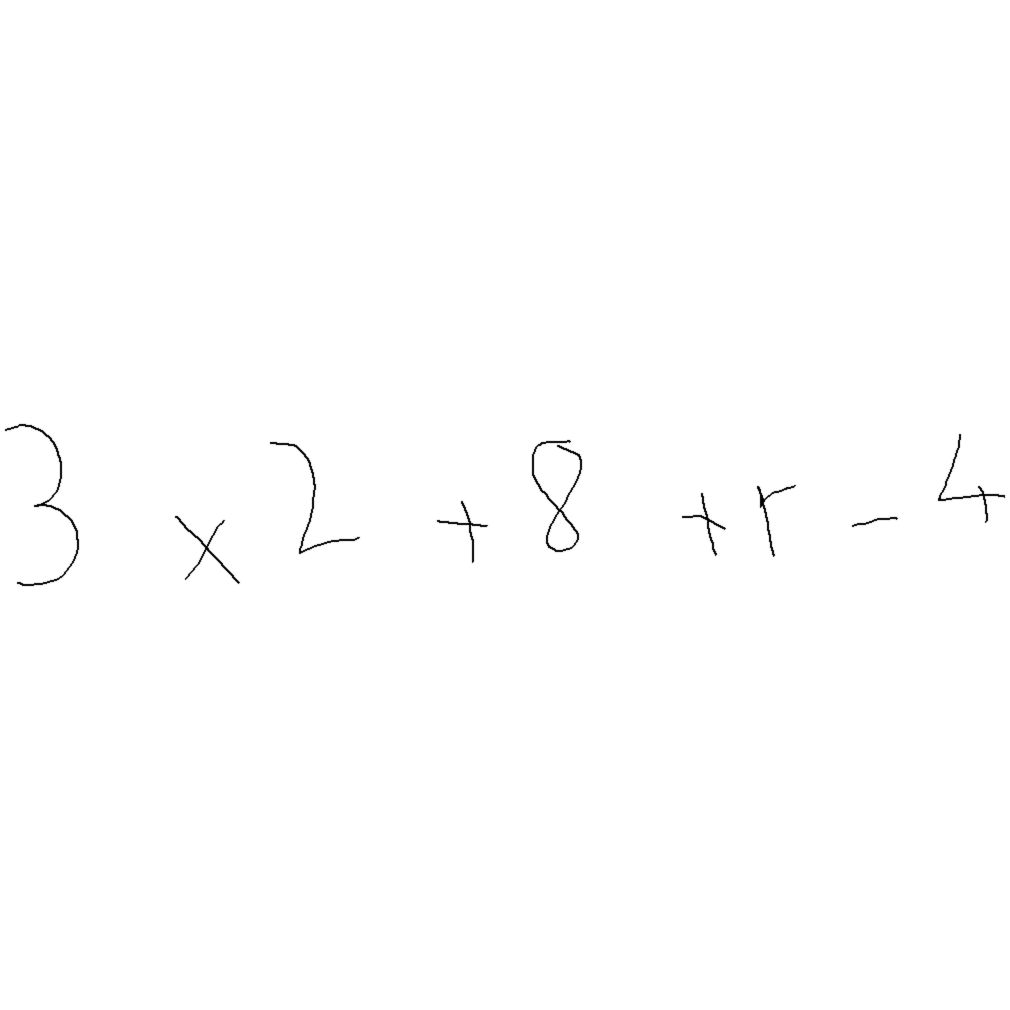 3 x 2 + 8 + r - 4